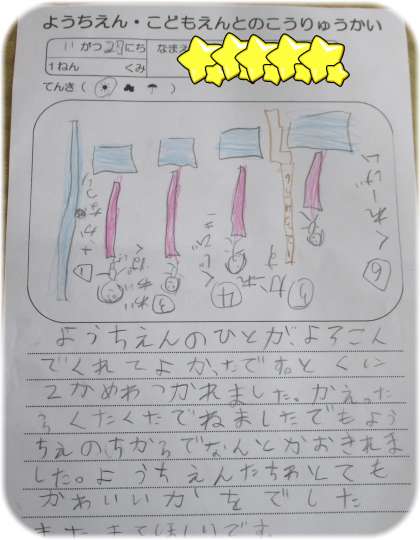 ようちえん・こどもえんとのこうりゅうかい
11がつ27にち なまえ
1ねん くみ
てんき（ ）
1
3
4
5
6
ようちえんのひとが、よろこん
でくれてよかったです。とくに
2かめわつかれました。かえった
らくたくたでねましたでもよう
ちえのちからでなんとかおきれま
した。ようちえんたちわとても
かわいいかをでした
またきてほしいです。